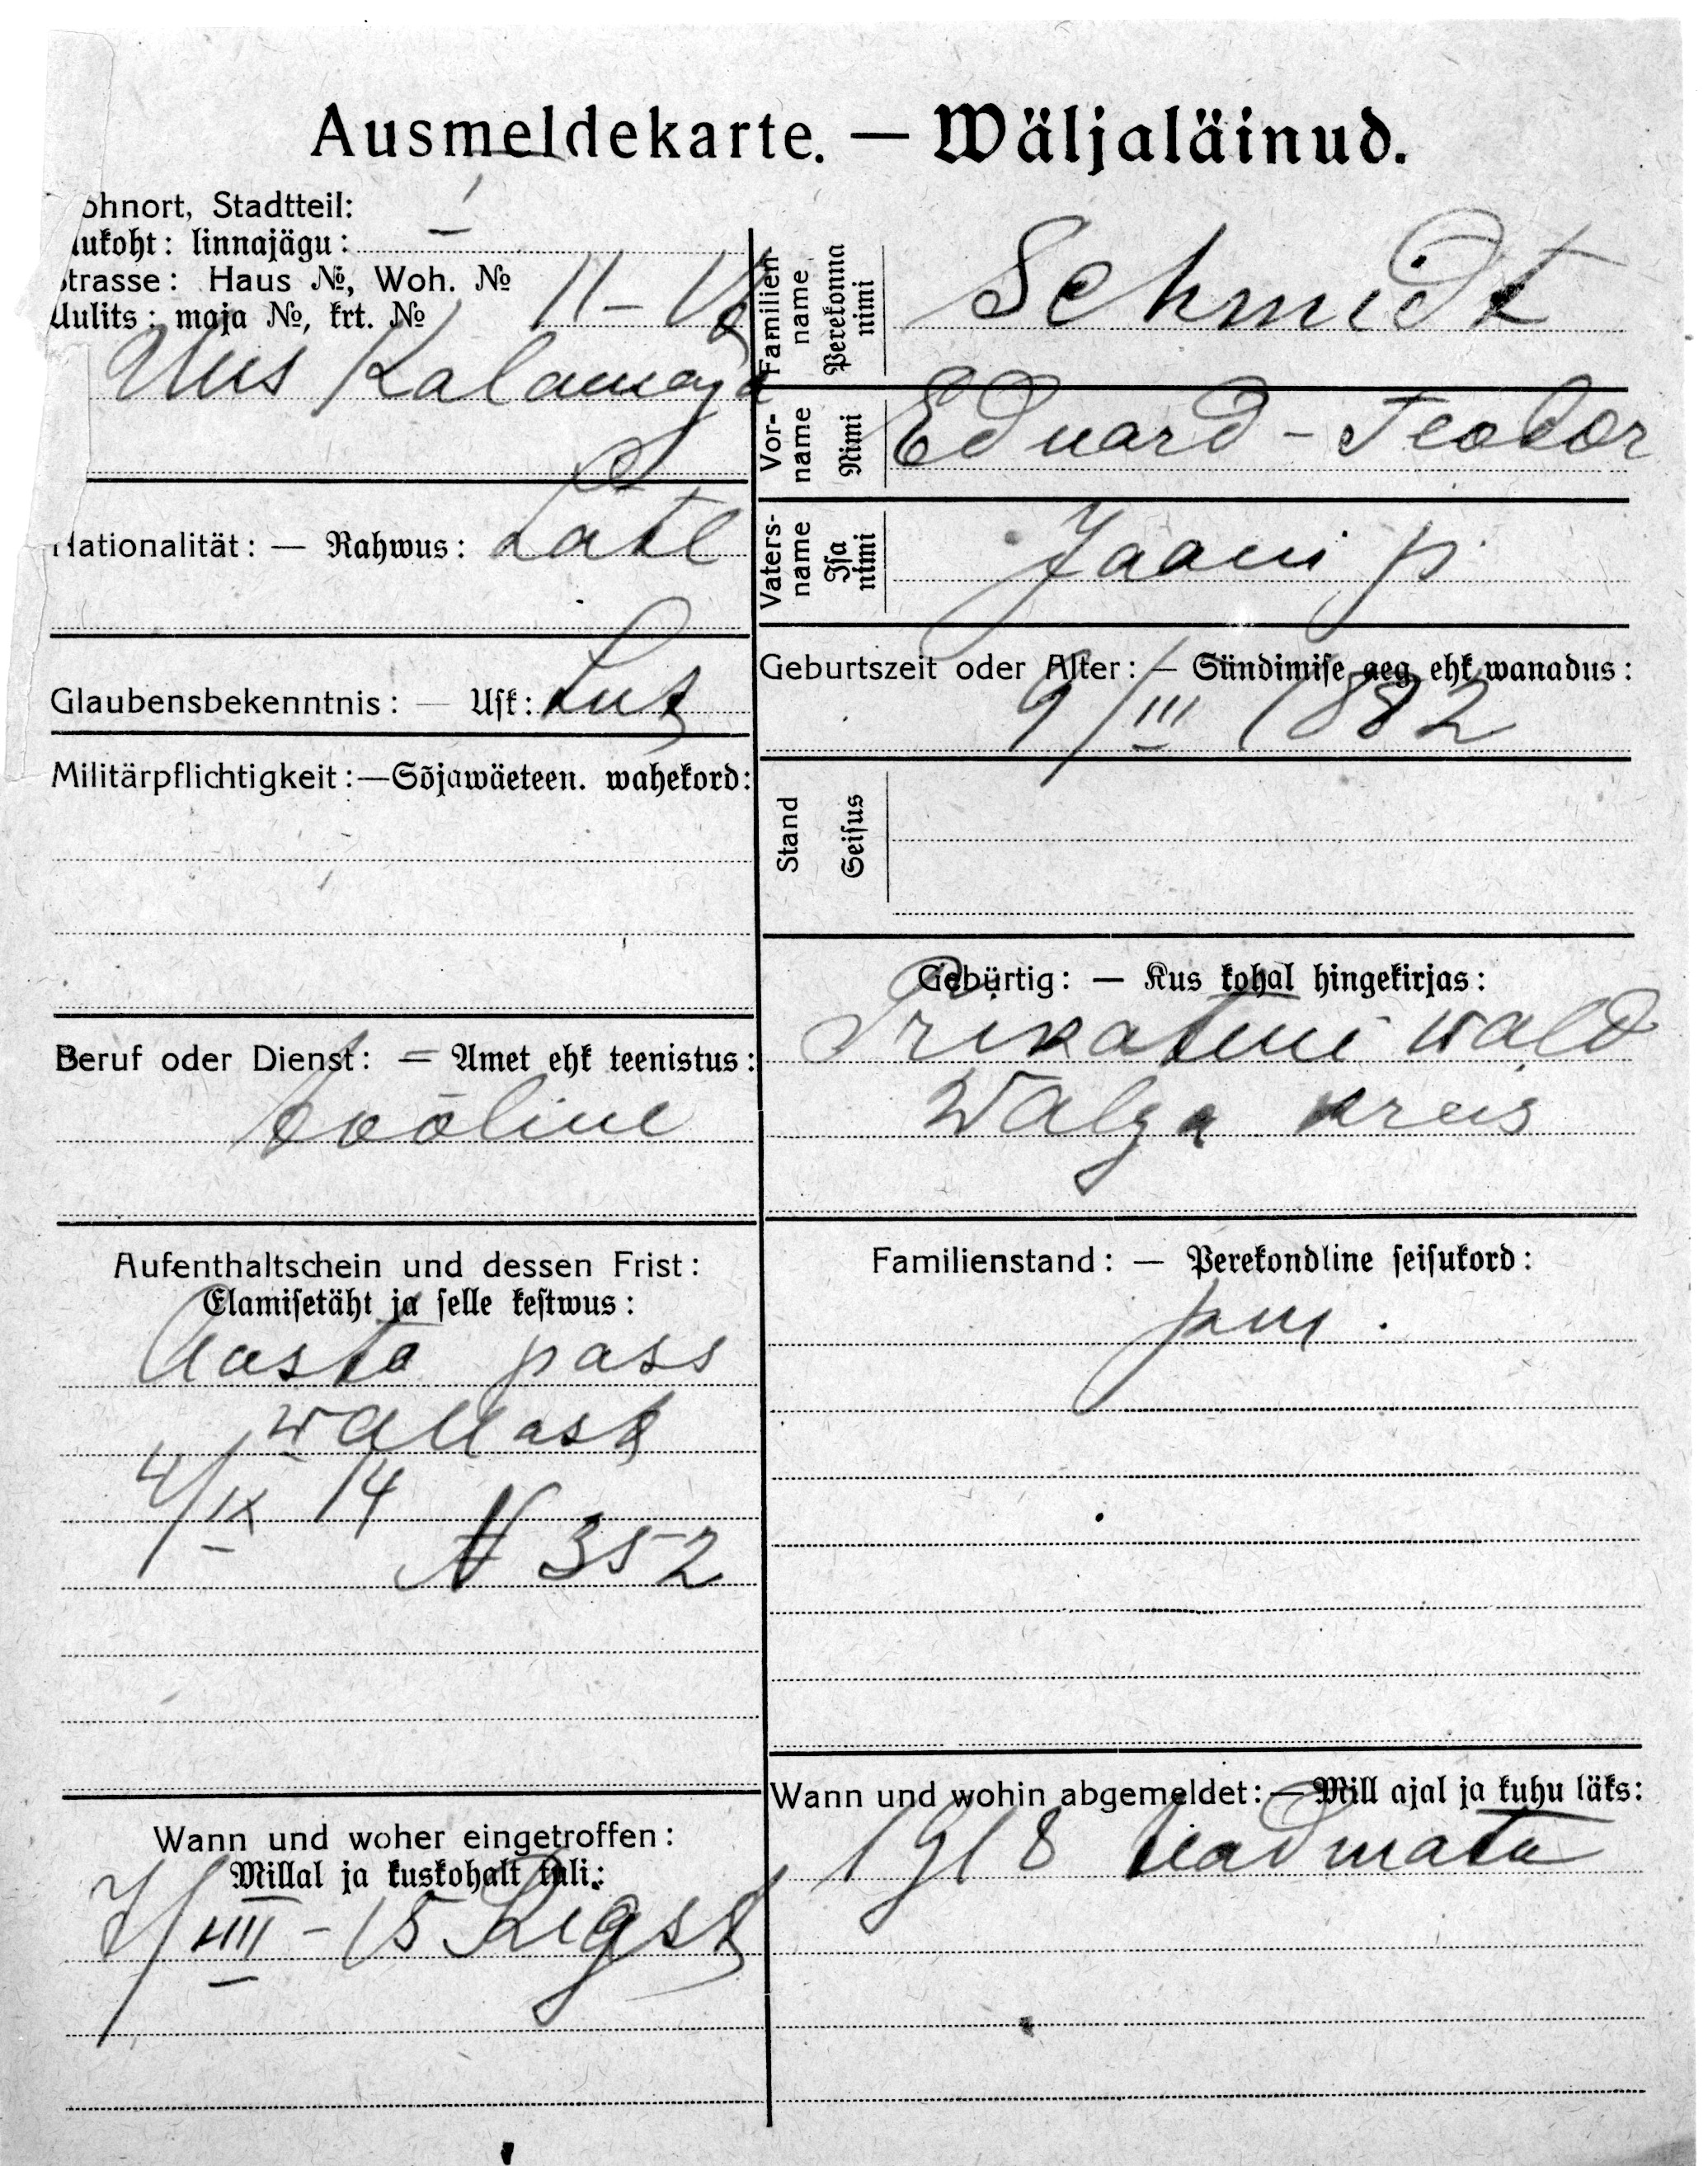 Ausmeldekarte. — Wäljaläinud.
ohnort, Stadtteil:
ukoht: linnajägu: I
trasse: Haus №, Woh. №
Uulits: maja №, krt. № 11 –
Uus Kalamaja
Nationalität: — Rahwus: Lätl
Glaubensbekenntnis: — Usk: Lut
Militärpflichtigkeit:—Sõjawäeteen. wahekord:
Beruf oder Dienst: — Amet ehk teenistus:
tööline
Aufenthaltschein und dessen Frist:
Elamisetäht ja selle kestwus:
Aasta pass
wallast
4/IX 14
N 352
Wann und woher eingetroffen:
Millal ja kuskohalt tuli:
/VIII – 15 Rigast
Familien-
name
Perekonna
nimi
Schmidt
Vor-
name
Nimi
Eduard - Teodor
Vaters-
name
Isa
nimi
Jaani p
Geburtszeit oder Alter: — Sündimise aeg ehk wanadus:
9/III 1882
Stand
Seisus
Gebürtig: — Kus kohal hingekirjas:
Trikatini wald
Walga kreis
Familienstand: — Perekondline seisukord:
Wann und wohin abgemeldet:—Mill ajal ja kuhu läks:
1918 teadmata